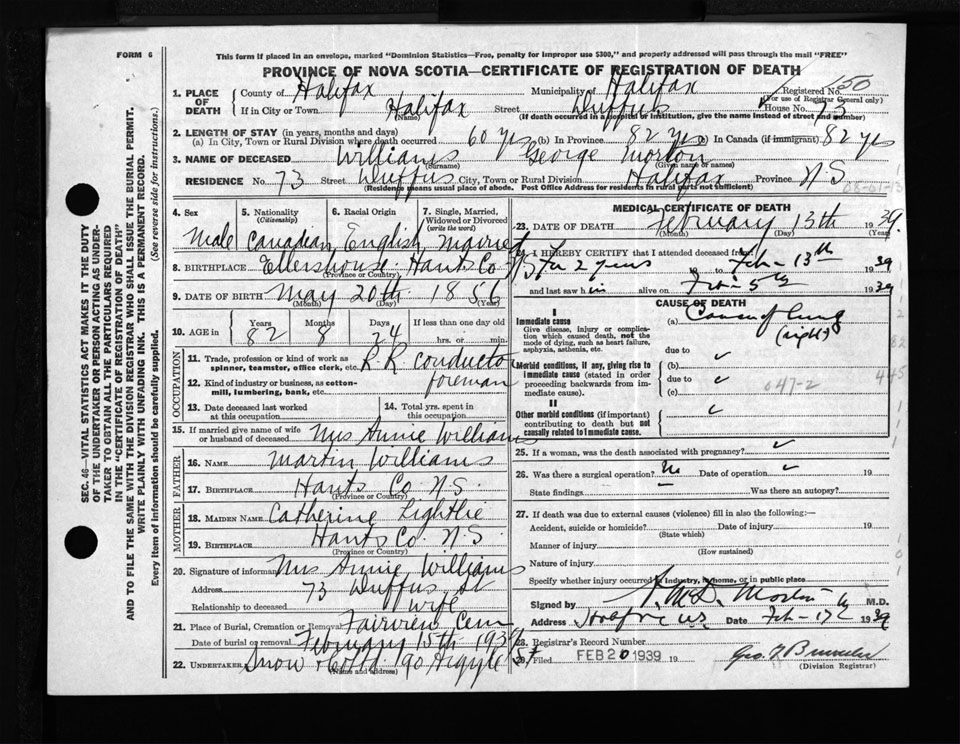 FORM 6
This form if placed in an envelope, marked "Dominion Statistics—Free, penalty for improper use $300," and properly addressed will pass through the mail "FREE"
PROVINCE OF NOVA SCOTIA—CERTIFICATE OF REGISTRATION OF DEATH
1. PLACE OF DEATH
County of Halifax Municipality of Halifax Registered No. 150
(For use of Registrar General only)
If in City or Town Halifax Street Duffus House No. 73
(Name) (If death occurred in a hospital or institution, give the name instead of street and number)
2. LENGTH OF STAY (in years, months and days)
(a) In City, Town or Rural Division where death occurred 60 yrs (b) In Province 82 yrs (c) In Canada (if immigrant) 82 yrs
3. NAME OF DECEASED Williams George Morton
(Surname) (Given name or names)
RESIDENCE No. 73 Street Duffus City, Town or Rural Division Halifax Province N S
(Residence means usual place of abode. Post Office Address for residents in rural parts not sufficient)
4. Sex Male
5. Nationality (Citizenship) Canadian
6. Racial Origin English
7. Single, Married, Widowed or Divorced (write the word) Married
8. BIRTHPLACE Ellershouse Hants Co N S
(Province or Country)
9. DATE OF BIRTH May 20th 1856
(Month) (Day) (Year)
10. AGE in Years 82 Months 8 Days 24 If less than one day old
hrs. or min.
OCCUPATION
11. Trade, profession or kind of work as spinner, teamster, office clerk, etc. R R conductor
12. Kind of industry or business, as cotton-mill, lumbering, bank, etc. foreman
13. Date deceased last worked at this occupation
14. Total yrs. spent in this occupation
15. If married give name of wife or husband of deceased Mrs Annie Williams
FATHER
16. Name Martin Williams
17. Birthplace Hants Co N.S.
(Province or Country)
MOTHER
18. Maiden Name Catherine Lightlie
19. Birthplace Hants Co. N.S.
(Province or Country)
20. Signature of informant Mrs Annie Williams
Address 73 Duffus St
Relationship to deceased wife
21. Place of Burial, Cremation or Removal Fairview Cem
Date of burial or removal February 15th 1939
22. Undertaker Snow & Co Ltd 90 Argyle St
(Name and address)
MEDICAL CERTIFICATE OF DEATH
23. DATE OF DEATH February 13th 1939
(Month) (Day) (Year)
24. I HEREBY CERTIFY that I attended deceased from
for 2 years to Feb - 13th 1939
and last saw him alive on Feb - 5th 1939
CAUSE OF DEATH
I
Immediate cause
Give disease, injury or complication which caused death, not the mode of dying, such as heart failure, asphyxia, asthenia, etc.
(a) Cancer of lung
(right)
due to
Morbid conditions, if any, giving rise to immediate cause (stated in order proceeding backwards from immediate).
(b)
due to
(c)
047-2
II
Other morbid conditions (if important) contributing to death but not causally related to immediate cause.
25. If a woman, was the death associated with pregnancy?
26. Was there a surgical operation? No Date of operation 19
State findings Was there an autopsy?
27. If death was due to external causes (violence) fill in also the following:—
Accident, suicide or homicide? Date of injury 19
(State which)
Manner of injury
(How sustained)
Nature of injury
Specify whether injury occurred in industry, in home, or in public place
Signed by M.D.
Address Halifax N.S. Date Feb - 17th 1939
28. Registrar's Record Number
Filed FEB 20 1939 19
(Division Registrar)
SEC. 46—VITAL STATISTICS ACT MAKES IT THE DUTY
OF THE UNDERTAKER OR PERSON ACTING AS UNDER-
TAKER TO OBTAIN ALL THE PARTICULARS REQUIRED
IN THE "CERTIFICATE OF REGISTRATION OF DEATH"
AND TO FILE THE SAME WITH THE DIVISION REGISTRAR WHO SHALL ISSUE THE BURIAL PERMIT.
WRITE PLAINLY WITH UNFADING INK. THIS IS A PERMANENT RECORD.
Every item of information should be carefully supplied. (See reverse side for instructions.)